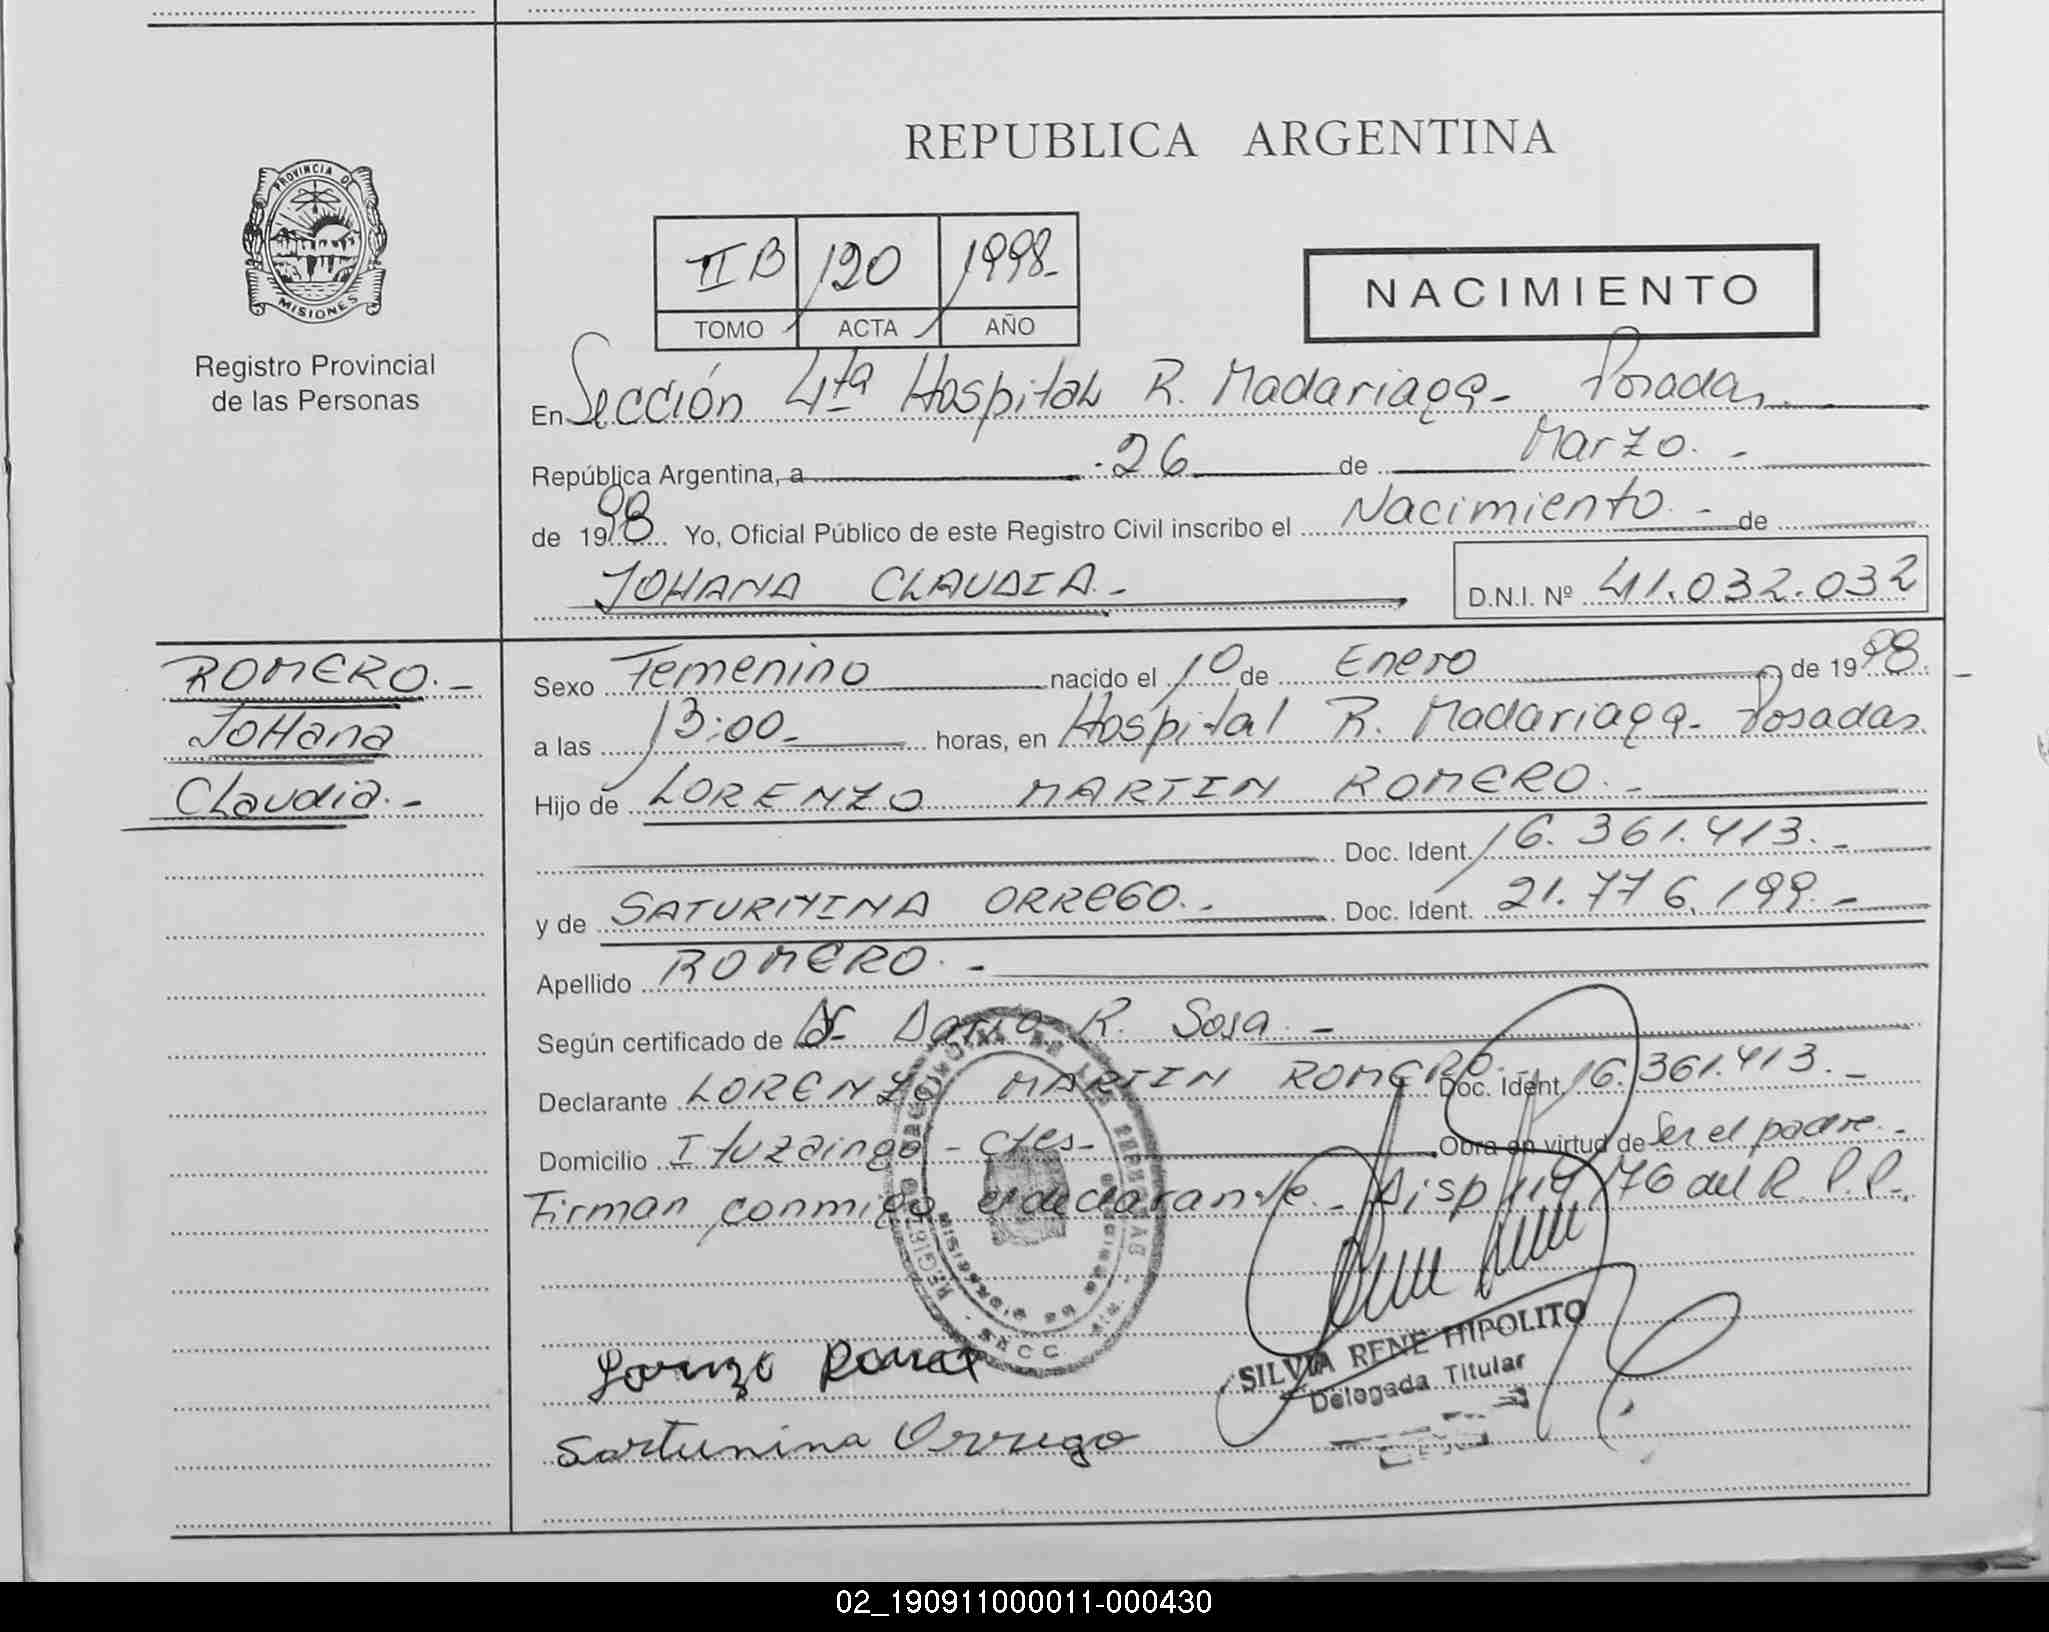 REPUBLICA ARGENTINA
PROVINCIA DE
MISIONES
Registro Provincial
de las Personas
II B 120 1998-
TOMO ACTA AÑO
NACIMIENTO
En Sección 4ta Hospital R. Madariaga - Posadas.-
República Argentina, a 26 de Marzo.-
de 1998 Yo, Oficial Público de este Registro Civil inscribo el Nacimiento.- de
JOHANA CLAUDIA.- D.N.I. Nº 41.032.032
ROMERO.-
JoHana
Claudia.-
Sexo Femenino nacido el 10 de Enero de 1998.-
a las 13:00- horas, en Hospital R. Madariaga - Posadas
Hijo de LORENZO MARTIN ROMERO.-
Doc. Ident. 16.361.413.-
y de SATURNINA ORREGO.- Doc. Ident. 21.776.199.-
Apellido ROMERO.-
Según certificado de Dr Dario R. Sosa.-
Declarante LORENZO MARTIN ROMERO.- Doc. Ident. 16.361.413.-
Domicilio Ituzaingo - Ctes- Obra en virtud de Ser el padre.-
Firman conmigo el declarante - Disp 114/76 del R.P.P.-
Sarturnina Orrego
SILVIA RENE HIPOLITO
Delegada Titular
02_190911000011-000430